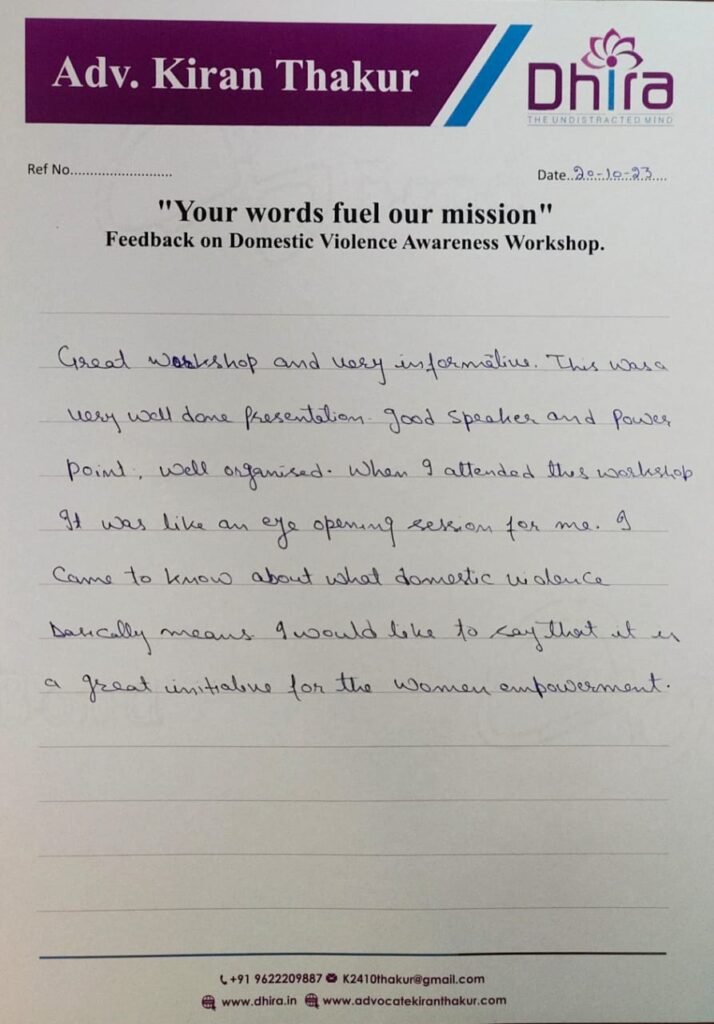 Adv. Kiran Thakur
Dhira
THE UNDISTRACTED MIND
Ref No..........................
Date..20-10-23....
"Your words fuel our mission"
Feedback on Domestic Violence Awareness Workshop.
Great workshop and very informative. This was a
very well done presentation. Good speaker and power
point, well organised. When I attended this workshop
It was like an eye opening session for me. I
came to know about what domestic violence
basically means. I would like to say that it is
a great initiative for the women empowerment.
+91 9622209887 K2410thakur@gmail.com
www.dhira.in www.advocatekiranthakur.com